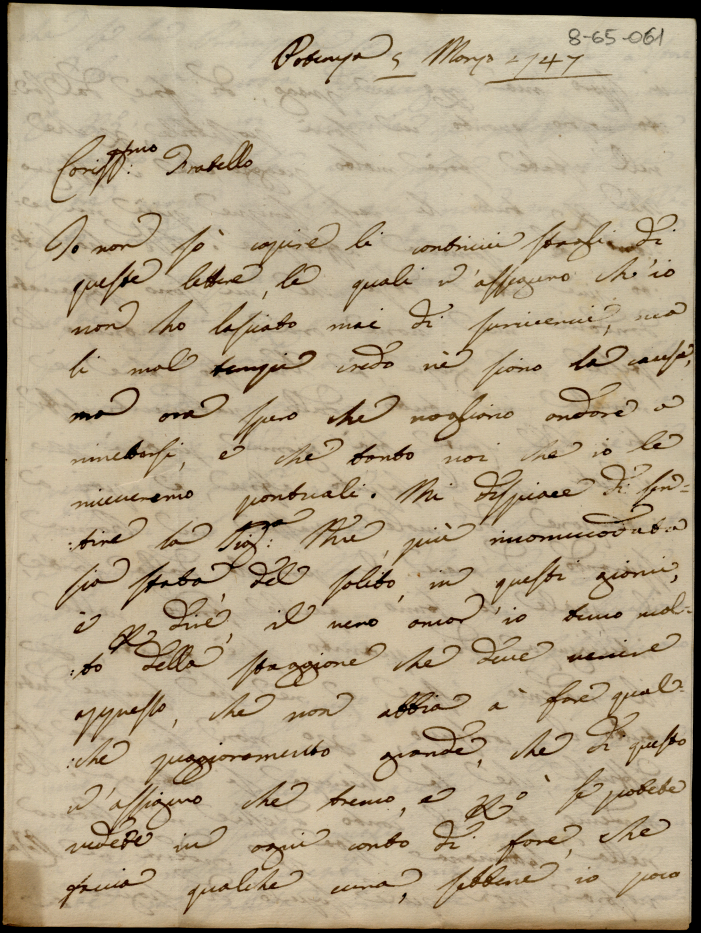 8-65-061
5 Marzo 1747
Cariss:mo Fratello
Io non sò capire li continui di
queste lettere, le quali v'assicuro ch'io
non ho lasciato mai di scrivervi, ma
li mal tempi credo nè siano la causa,
ma ora spero che vogliano andare a
rimettersi, e che tanto voi che io le
riceveremo pontuali. Mi dispiace di sen=
:tire la Sig:a Mre, più incomodata
sia stata, del solito, in questi giorni,
è dire, il vero ancor'io temo mol=
:to della staggione che deve venire
appresso, che non abbia à fare qual=
:che peggioramento grande, che di questo
v'assicuro che tremo, e se potete
vedete in ogni conto di fare, che
faccia qualche cura, sebbene io poco